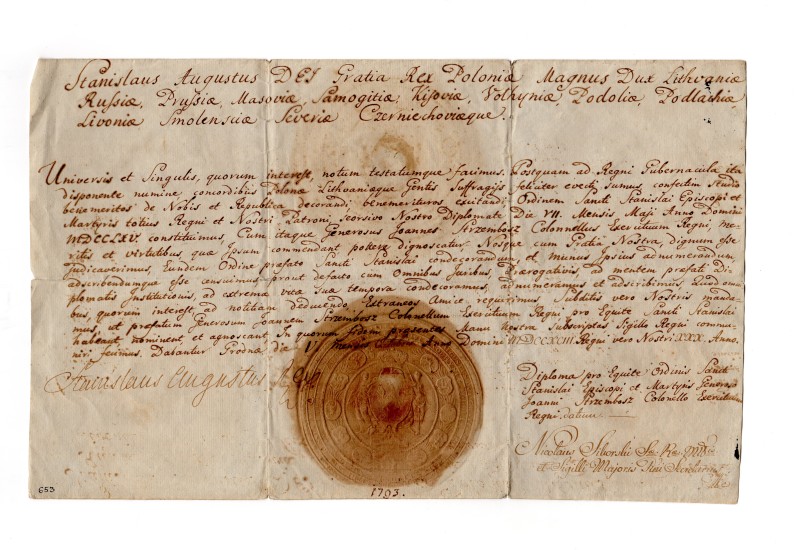 Stanislaus Augustus DEI Gratia Rex Poloniæ Magnus Dux Lithvaniæ
Russiæ, Prussiæ, Masoviæ, Samogitiæ, Kijoviæ, Volhyniæ, Podoliæ, Podlachiæ,
Livoniæ Smolensciæ Severiæ Czerniechoviæque.
Universis et Singulis, quorum interest, notum testatumque facimus. Postquam ad Regni Gubernacula ita
disponente numine, concordibus Polonæ Lithvaniæque Gentis Suffragiis feliciter evecti sumus, confestim Studio
benemeritos de Nobis et Republica decorandi, benemerituros excitandi Ordinem Sancti Stanislai Episcopi et
Martyris totius Regni et Nostri Patroni, seorsivo Nostro Diplomate Die VII. Mensis Maji Anno Domini
MDCCLXV. constituimus, Cum itaque Generosus Joannes Strzembosz Colonnellus Exercituum Regni, me-
ritis et virtutibus, quæ Ipsum commendant pollere dignoscatur Nosque eum Gratia Nostra, dignum esse
judicaverimus, Eundem Ordine præfato Sancti Stanislai condecorandum, et munus Ipsius adnumerandum
adscribendumque esse censuimus, prout de facto cum Omnibus Juribus Prærogativis ad mentem præfati Di-
plomatis Institutionis, ad extrema vitæ Suæ tempora condecoramus, adnumeramus et adscribimus. Quod omni-
bus, quorum interest, ad notitiam deducendo Extraneos Amice requirimus Subditis vero Nostris manda-
mus, ut præfatum Generosum Joannem Strzembosz Colonellum Exercituum Regni pro Equite Sancti Stanislai
habeant nominent et agnoscant. In quorum fidem presentes Manu Nostra Subscriptas Sigillo Regni commu-
niri fecimus. Dabantur Grodnæ die V Mensis Anno Domini MDCCXCIII Regni vero Nostri XXX. Anno.
Stanislaus Augustus Rex
Diploma pro Equite Ordinis Sancti
Stanislai Episcopi et Martyris Generoso
Joanni Strzembosz Colonello Exercituum
Regni datum
Nicolaus Siborski
et Sigilli Majoris
653
1793.